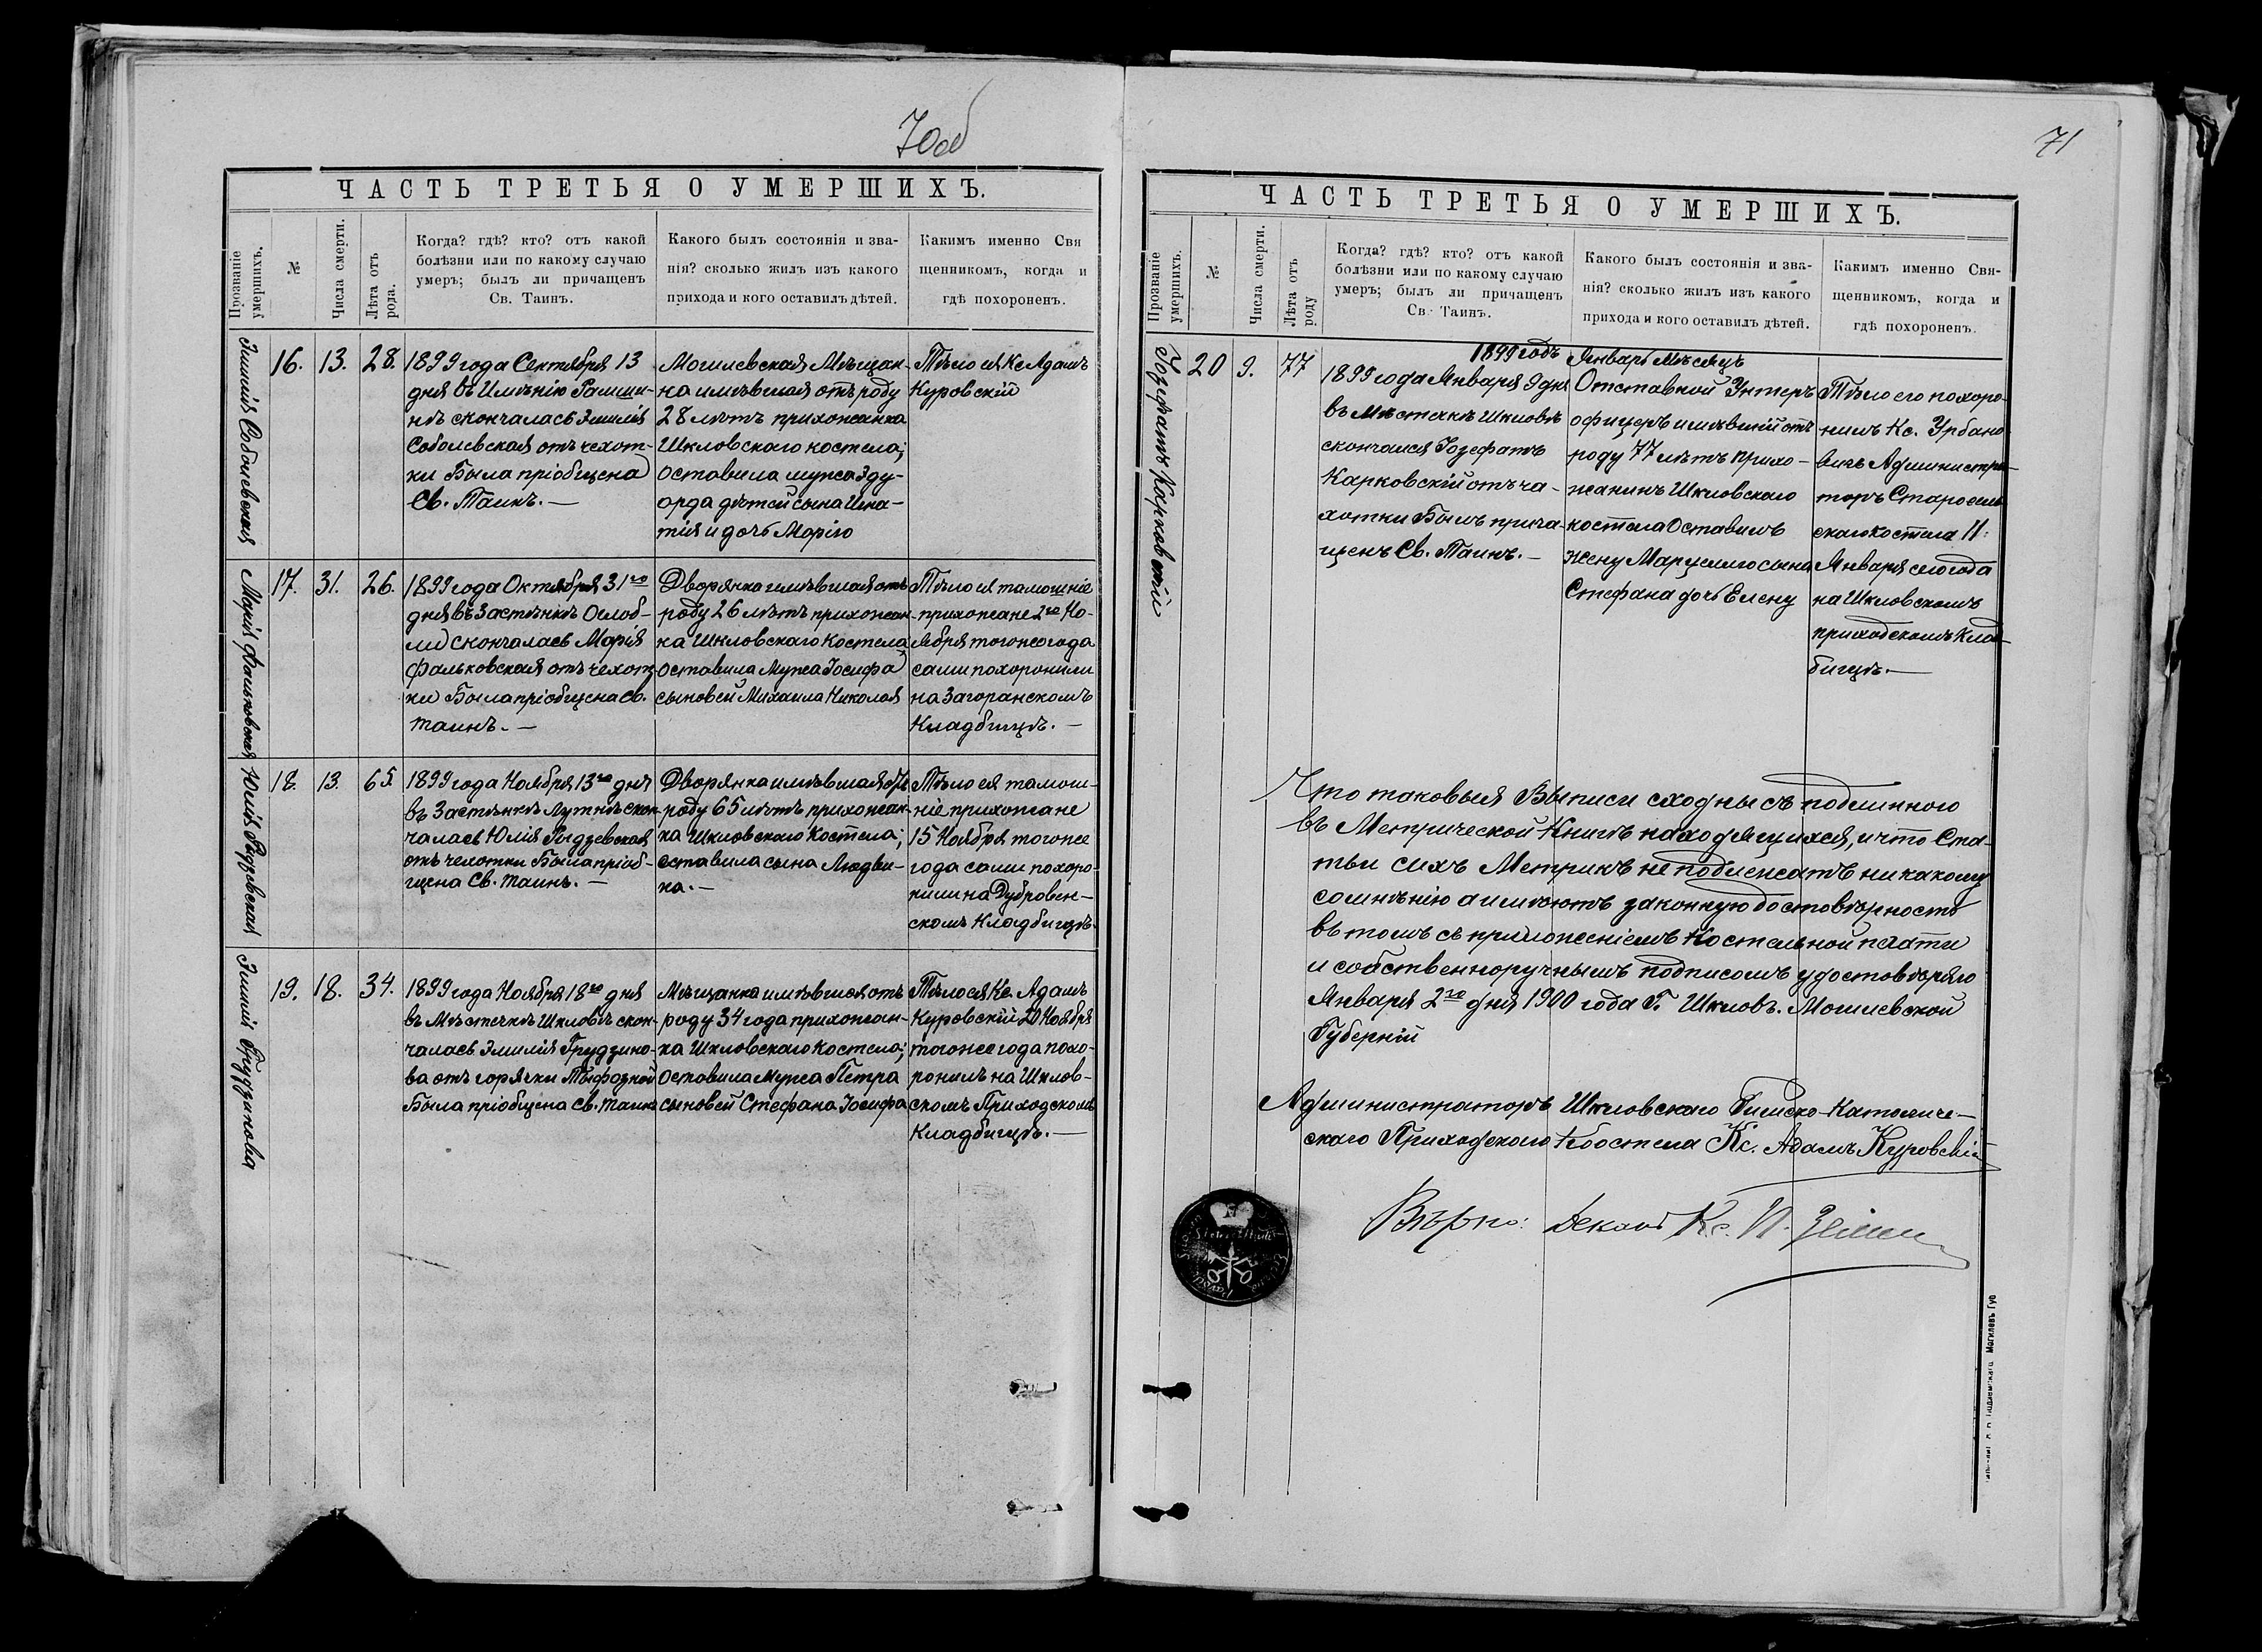 70об
ЧАСТЬ ТРЕТЬЯ О УМЕРШИХЪ.
Прозваніе умершихъ.
№
Числа смерти.
Лѣта отъ рода.
Когда? гдѣ? кто? отъ какой
болѣзни или по какому случаю
умеръ; былъ ли причащенъ
Св. Таинъ.
Какого былъ состоянія и зва-
нія? сколько жилъ изъ какого
прихода и кого оставилъ дѣтей.
Какимъ именно Свя
щенникомъ, когда и
гдѣ похороненъ.
Эмилія Соболевская
16. 13. 28.
1899 года Сентября 13
дня въ Имѣнію
скончалась Эмилія
Соболевская отъ чехот-
ки Была пріобщена
Св. Таинъ. —
Могилевская Мѣщан-
ка имѣвшая отъ роду
28 лѣтъ прихожанка
Шкловскаго костела;
оставила мужа Эду-
орда дѣтей сына Игна-
тія и дочь Марію
Тѣло ея Кс Адамъ
Куровскій
Марія Фальковская
17. 31. 26.
1899 года Октября 31го
дня въ Застѣнкѣ Оглоб-
ли скончалась Марія
Фальковская отъ чехот-
ки Была пріобщена Св.
таинъ. —
Дворянка имѣвшая отъ
роду 26 лѣтъ прихожан-
ка Шкловскаго Костела
оставила Мужа Іосифа
сыновей Михаила Николая
Тѣло ея тамошніе
прихожане 2го Но-
ября тогоже года
сами похоронили
на Загоранскомъ
Кладбищѣ. —
Юлія Рыдзевская
18. 13. 65
1899 года Ноября 13го дня
въ Застѣнкѣ Лутнѣ скон-
чалась Юлія Рыдзевская
отъ чехотки Была пріоб-
щена Св. таинъ. —
Дворянка имѣвшая отъ
роду 65 лѣтъ прихожан-
ка Шкловскаго Костела;
оставила сына Людви-
ка. —
Тѣло ея тамош-
ніе прихожане
15 Ноября тогоже
года сами похоро-
нили на Дубровен-
скомъ Кладбищѣ.
Эмилія Грудзинова
19. 18. 34.
1899 года Ноября 18го дня
въ Мѣстечкѣ Шкловѣ скон-
чалась Эмилія Грудзино-
ва отъ горячки Тыфозной
Была пріобщена Св. Таинъ
Мѣщанка имѣвшая отъ
роду 34 года прихожан-
ка Шкловскаго Костела;
оставила Мужа Петра
сыновей Стефана Іосифа
Тѣло ея Кс. Адамъ
Куровскій 20 Ноября
тогоже года похо-
ронилъ на Шклов-
скомъ Приходскомъ
Кладбищѣ. —
71
ЧАСТЬ ТРЕТЬЯ О УМЕРШИХЪ.
Прозваніе умершихъ.
№
Числа смерти.
Лѣта отъ роду
Когда? гдѣ? кто? отъ какой
болѣзни или по какому случаю
умеръ; былъ ли причащенъ
Св. Таинъ.
Какого былъ состоянія и зва-
нія? сколько жилъ изъ какого
прихода и кого оставилъ дѣтей.
Какимъ именно Свя-
щенникомъ, когда и
гдѣ похороненъ.
1899 годъ Январь Мѣсяцъ
Іозефатъ Карковскій
20 9. 77
1899 года Января 9 дня
въ Мѣстечкѣ Шкловѣ
скончался Іозефатъ
Карковскій отъ ча-
хотки Былъ прича-
щенъ Св. Таинъ. —
Отставной Унтеръ
офицеръ имѣвшій отъ
роду 77 лѣтъ прихо-
жанинъ Шкловскаго
костела Оставилъ
жену сына
Стефана дочь Елену
Тѣло его похоро-
нилъ Кс. Урбано-
вичъ Администра-
торъ Старосель-
скаго костела 11
Января сего года
на Шкловскомъ
приходскомъ Клад-
бищѣ. —
Что таковыя Выписи сходны съ подлинного
въ Метрической Книгѣ находящихся, и что Ста-
тьи сихъ Метрикъ не подлежатъ никакому
сомнѣнію а имѣютъ законную достовѣрность
въ томъ съ приложеніемъ Костельной печати
и собственноручнымъ подписомъ удостовѣряю
Января 2го дня 1900 года Г. Шкловъ. Могилевской
Губерній
Администраторъ Шкловскаго Римско-Католиче-
скаго Приходскаго Костела Кс. Адамъ Куровскій
Вѣрно: Деканъ Кс. П.
Могилевъ Губ